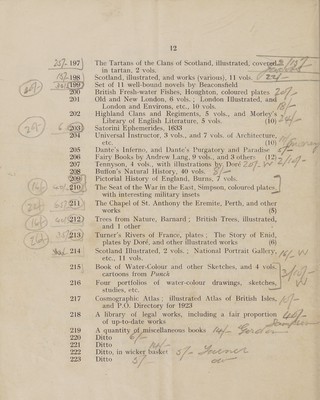 12
197 The Tartans of the Clans of Scotland, illustrated, covered
in tartan, 2 vols.
198 Scotland, illustrated, and works (various), 11 vols.
199 Set of 11 well-bound novels by Beaconsfield
200 British Fresh-water Fishes, Houghton, coloured plates
201 Old and New London, 6 vols. ; London Illustrated, and
London and Environs, etc., 10 vols.
202 Highland Clans and Regiments, 5 vols., and Morley's
Library of English Literature, 5 vols. (10)
203 Satorini Ephemorides, 1633
204 Universal Instructor, 3 vols., and 7 vols. of Architecture,
etc. (10)
205 Dante's Inferno, and Dante's Purgatory and Paradise
206 Fairy Books by Andrew Lang, 9 vols., and 3 others (12)
207 Tennyson, 4 vols., with illustrations by Doré
208 Buffon's Natural History, 40 vols.
209 Pictorial History of England, Burns, 7 vols.
210 The Seat of the War in the East, Simpson, coloured plates,
with interesting military insets
211 The Chapel of St. Anthony the Eremite, Perth, and other
works (5)
212 Trees from Nature, Barnard ; British Trees, illustrated,
and 1 other
213 Turner's Rivers of France, plates ; The Story of Enid,
plates by Doré, and other illustrated works (6)
214 Scotland Illustrated, 2 vols. ; National Portrait Gallery,
etc., 11 vols.
215 Book of Water-Colour and other Sketches, and 4 vols.
cartoons from Punch
216 Four portfolios of water-colour drawings, sketches,
studies, etc.
217 Cosmographic Atlas ; illustrated Atlas of British Isles,
and P.O. Directory for 1923
218 A library of legal works, including a fair proportion
of up-to-date works
219 A quantity of miscellaneous books 14/- Gordon
220 Ditto 6/-
221 Ditto
222 Ditto, in wicker basket 5/-
223 Ditto 5/-